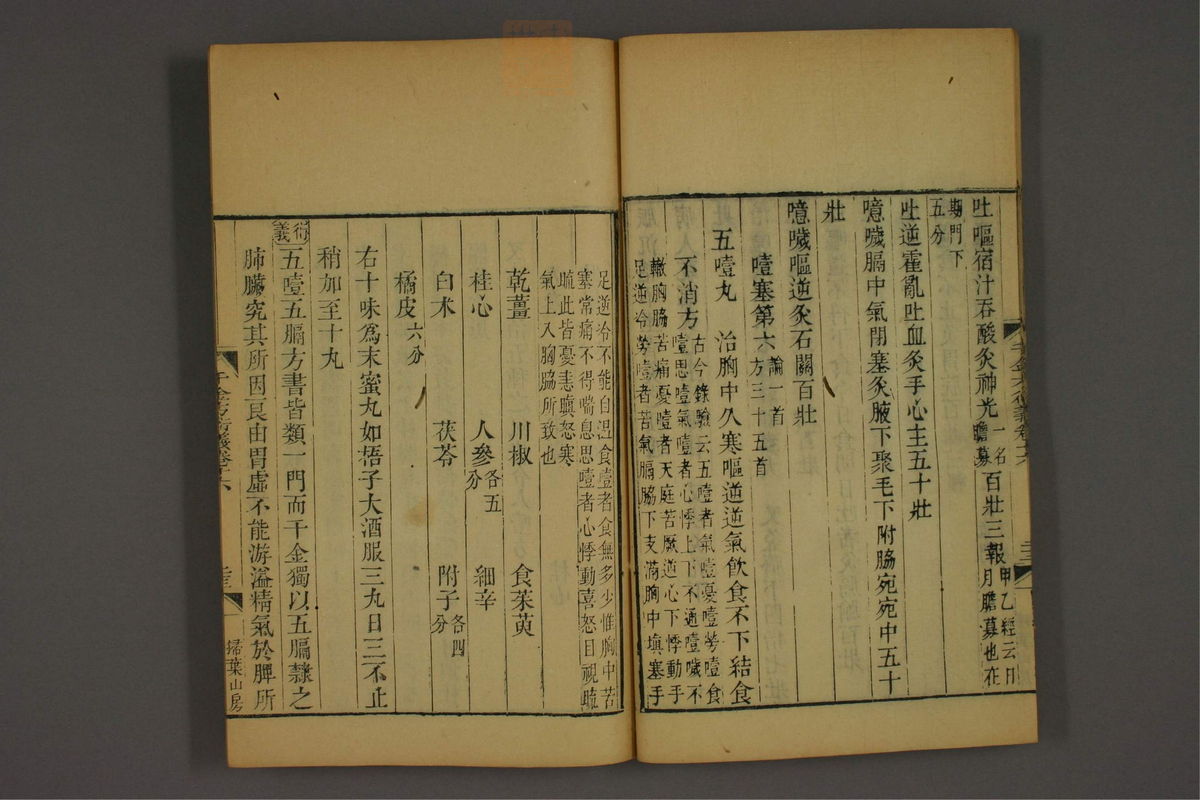 吐嘔宿汁吞酸灸神光一名膽募百壯三報甲乙經云日月膽募也在
期門下五分
吐逆霍亂吐血灸手心主五十壯
噫噦膈中氣閉塞灸腋下聚毛下附脇宛宛中五十
壯
噫噦嘔逆灸石關百壯
噎塞第六論一首方三十五首
五噎丸 治胸中久寒嘔逆逆氣飲食不下結食
不消方古今錄驗云五噎者氣噎憂噎勞噎食噎思噎氣噎者心悸上下不通噫噦不
轍胸脇苦痛憂噎者天庭苦厥逆心下悸動手足逆冷勞噎者苦氣膈脇下支滿胸中填塞手
足逆冷不能自温食噎者食無多少惟胸中苦塞常痛不得喘息思噎者心悸動喜忘目視䀮
䀮此皆憂恚嗔怒寒氣上入胸脇所致也
乾薑 川椒 食茱萸
桂心 人參各五分 細辛
白术 茯苓 附子各四分
橘皮六分
右十味爲末蜜丸如梧子大酒服三丸日三不止
稍加至十丸
衍義五噎五膈方書皆類一門而千金獨以五膈隸之
肺臟究其所因良由胃虛不能游溢精氣於脾所
千金方衍義卷十六
三三
掃葉山房